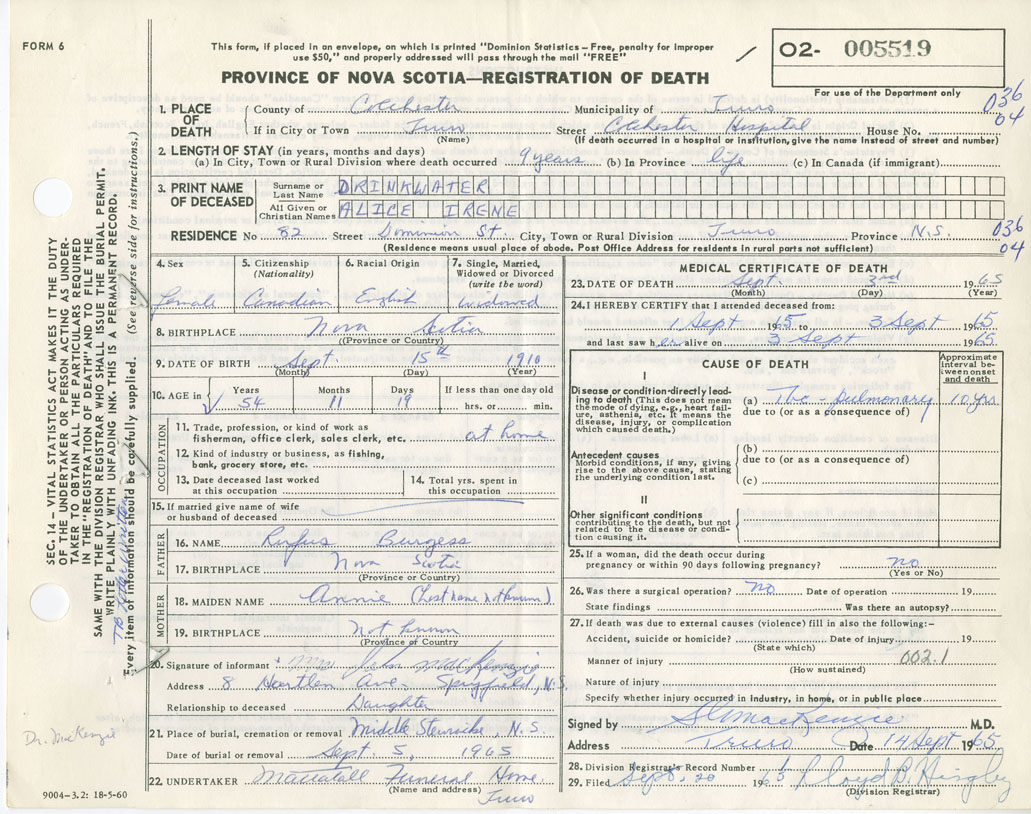 FORM 6
This form, if placed in an envelope, on which is printed "Dominion Statistics – Free, penalty for improper
use $50," and properly addressed will pass through the mail "FREE"
PROVINCE OF NOVA SCOTIA—REGISTRATION OF DEATH
O2- 005519
For use of the Department only
036
04
1. PLACE OF DEATH
County of Colchester Municipality of Truro
If in City or Town Truro Street Colchester Hospital House No.
(Name) (If death occurred in a hospital or institution, give the name instead of street and number)
2. LENGTH OF STAY (in years, months and days)
(a) In City, Town or Rural Division where death occurred 9 years (b) In Province life (c) In Canada (if immigrant)
3. PRINT NAME OF DECEASED
Surname or Last Name DRINKWATER
All Given or Christian Names ALICE IRENE
RESIDENCE No 82 Street Dominion St. City, Town or Rural Division Truro Province N.S.
036
04
(Residence means usual place of abode. Post Office Address for residents in rural parts not sufficient)
4. Sex
Female
5. Citizenship (Nationality)
Canadian
6. Racial Origin
English
7. Single, Married, Widowed or Divorced (write the word)
widowed
8. BIRTHPLACE Nova Scotia
(Province or Country)
9. DATE OF BIRTH Sept. 15th 1910
(Month) (Day) (Year)
10. AGE in Years Months Days If less than one day old
54 11 19 hrs. or min.
OCCUPATION
11. Trade, profession, or kind of work as
fisherman, office clerk, sales clerk, etc. at home
12. Kind of industry or business, as fishing,
bank, grocery store, etc.
13. Date deceased last worked at this occupation
14. Total yrs. spent in this occupation
15. If married give name of wife
or husband of deceased
FATHER
16. NAME Rufus Burgess
17. BIRTHPLACE Nova Scotia
(Province or Country)
MOTHER
18. MAIDEN NAME Annie (Last name not known)
19. BIRTHPLACE Not known
(Province or Country)
20. Signature of informant Mrs John MacKenzie
Address 8 Ave. Spryfield, N.S.
Relationship to deceased Daughter
21. Place of burial, cremation or removal Middle Stewiacke, N.S.
Date of burial or removal Sept. 5, 1965
22. UNDERTAKER Mattatall Funeral Home
(Name and address) Truro
MEDICAL CERTIFICATE OF DEATH
23. DATE OF DEATH Sept. 3rd 1965
(Month) (Day) (Year)
24. I HEREBY CERTIFY that I attended deceased from:
1 Sept to 3 Sept 1965
and last saw her alive on 3 Sept 1965
CAUSE OF DEATH
Approximate interval between onset and death
I
Disease condition-directly leading to death (This does not mean
the mode of dying, e.g., heart failure, asthenia, etc. It means the
disease, injury, or complication
which caused death.)
(a) Tbc - pulmonary 10 yrs
due to (or as a consequence of)
Antecedent causes
Morbid conditions, if any, giving
rise to the above cause, stating
the underlying condition last.
(b)
due to (or as a consequence of)
(c)
II
Other significant conditions
contributing to the death, but not
related to the disease or condition causing it.
25. If a woman, did the death occur during
pregnancy or within 90 days following pregnancy? no
(Yes or No)
26. Was there a surgical operation? no Date of operation 19
State findings Was there an autopsy?
27. If death was due to external causes (violence) fill in also the following:–
Accident, suicide or homicide? Date of injury 19
(State which)
Manner of injury 002.1
(How sustained)
Nature of injury
Specify whether injury occurred in industry, in home, or in public place
Signed by MacKenzie M.D.
Address Truro Date 14 Sept 1965
28. Division Registrar's Record Number
29. Filed Sept. 20 1965 Lloyd B. Hingley
(Division Registrar)
SEC. 14 – VITAL STATISTICS ACT MAKES IT THE DUTY
OF THE UNDERTAKER OR PERSON ACTING AS UNDER-
TAKER TO OBTAIN ALL THE PARTICULARS REQUIRED
IN THE "REGISTRATION OF DEATH" AND TO FILE THE
SAME WITH THE DIVISION REGISTRAR WHO SHALL ISSUE THE BURIAL PERMIT.
WRITE PLAINLY WITH UNFADING INK. THIS IS A PERMANENT RECORD.
TB letter written
Every item of information should be carefully supplied. (See reverse side for instructions.)
Dr. MacKenzie
9004-3.2: 18-5-60